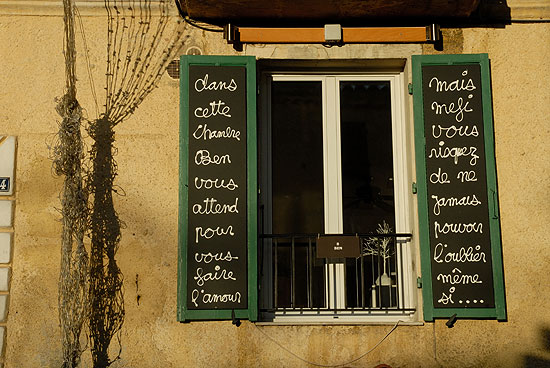 4
dans
cette
chambre
Ben
vous
attend
pour
vous
faire
l'amour
BEN
mais
mefi
vous
risquez
de ne
jamais
pouvoir
l'oublier
même
si....